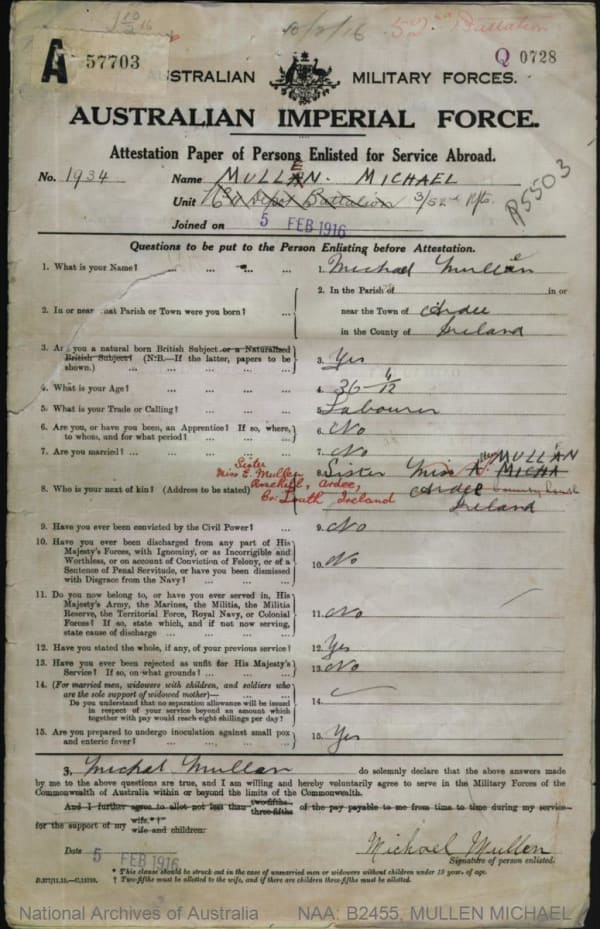 10/2/16
10/2/16 52nd Battalion
A 57703
Q 0728
AUSTRALIAN MILITARY FORCES.
AUSTRALIAN IMPERIAL FORCE.
Attestation Paper of Persons Enlisted for Service Abroad.
No. 1934 Name MULLEN. MICHAEL
Unit Depot Battalion 3/52nd Rfts.
R5503
Joined on 5 FEB 1916
Questions to be put to the Person Enlisting before Attestation.
1. What is your Name? ... ... ... 1. Michael Mullen
2. In or near what Parish or Town were you born? ... 2. In the Parish of in or
near the Town of Ardee
in the County of Ireland
3. Are you a natural born British Subject or a Naturalized
British Subject? (N.B.—If the latter, papers to be
shown.) ... ... ... 3. Yes
4. What is your Age? ... ... ... 4. 36 4/12
5. What is your Trade or Calling? ... ... ... 5. Labourer
6. Are you, or have you been, an Apprentice? If so, where,
to whom, and for what period? ... ... ... 6. No
7. Are you married? ... ... ... ... 7. No
8. Who is your next of kin? (Address to be stated) 8. Sister Miss MULLAN MICHA
Ardee County Louth
Ireland
Sister
Miss E. Mullen
Ardee,
Co: Louth Ireland
9. Have you ever been convicted by the Civil Power? ... 9. No
10. Have you ever been discharged from any part of His
Majesty's Forces, with Ignominy, or as Incorrigible and
Worthless, or on account of Conviction of Felony, or of a
Sentence of Penal Servitude, or have you been dismissed
with Disgrace from the Navy? ... ... ... 10. No
11. Do you now belong to, or have you ever served in, His
Majesty's Army, the Marines, the Militia, the Militia
Reserve, the Territorial Force, Royal Navy, or Colonial
Forces? If so, state which, and if not now serving,
state cause of discharge ... ... ... 11. No
12. Have you stated the whole, if any, of your previous service? 12. Yes
13. Have you ever been rejected as unfit for His Majesty's
Service? If so, on what grounds? ... ... 13. No
14. (For married men, widowers with children, and soldiers who
are the sole support of widowed mother)—
Do you understand that no separation allowance will be issued
in respect of your service beyond an amount which
together with pay would reach eight shillings per day? 14.
15. Are you prepared to undergo inoculation against small pox
and enteric fever? ... ... ... ... 15. Yes
I, Michael Mullen do solemnly declare that the above answers made
by me to the above questions are true, and I am willing and hereby voluntarily agree to serve in the Military Forces of the
Commonwealth of Australia within or beyond the limits of the Commonwealth.
And I further agree to allot not less than two-fifths three-fifths of the pay payable to me from time to time during my service
for the support of my wife.*† wife and children:
Date 5 FEB 1916 Michael Mullen
Signature of person enlisted.
* This clause should be struck out in the case of unmarried men or widowers without children under 18 years of age.
† Two-fifths must be allotted to the wife, and if there are children three-fifths must be allotted.
National Archives of Australia NAA: B2455, MULLEN MICHAEL